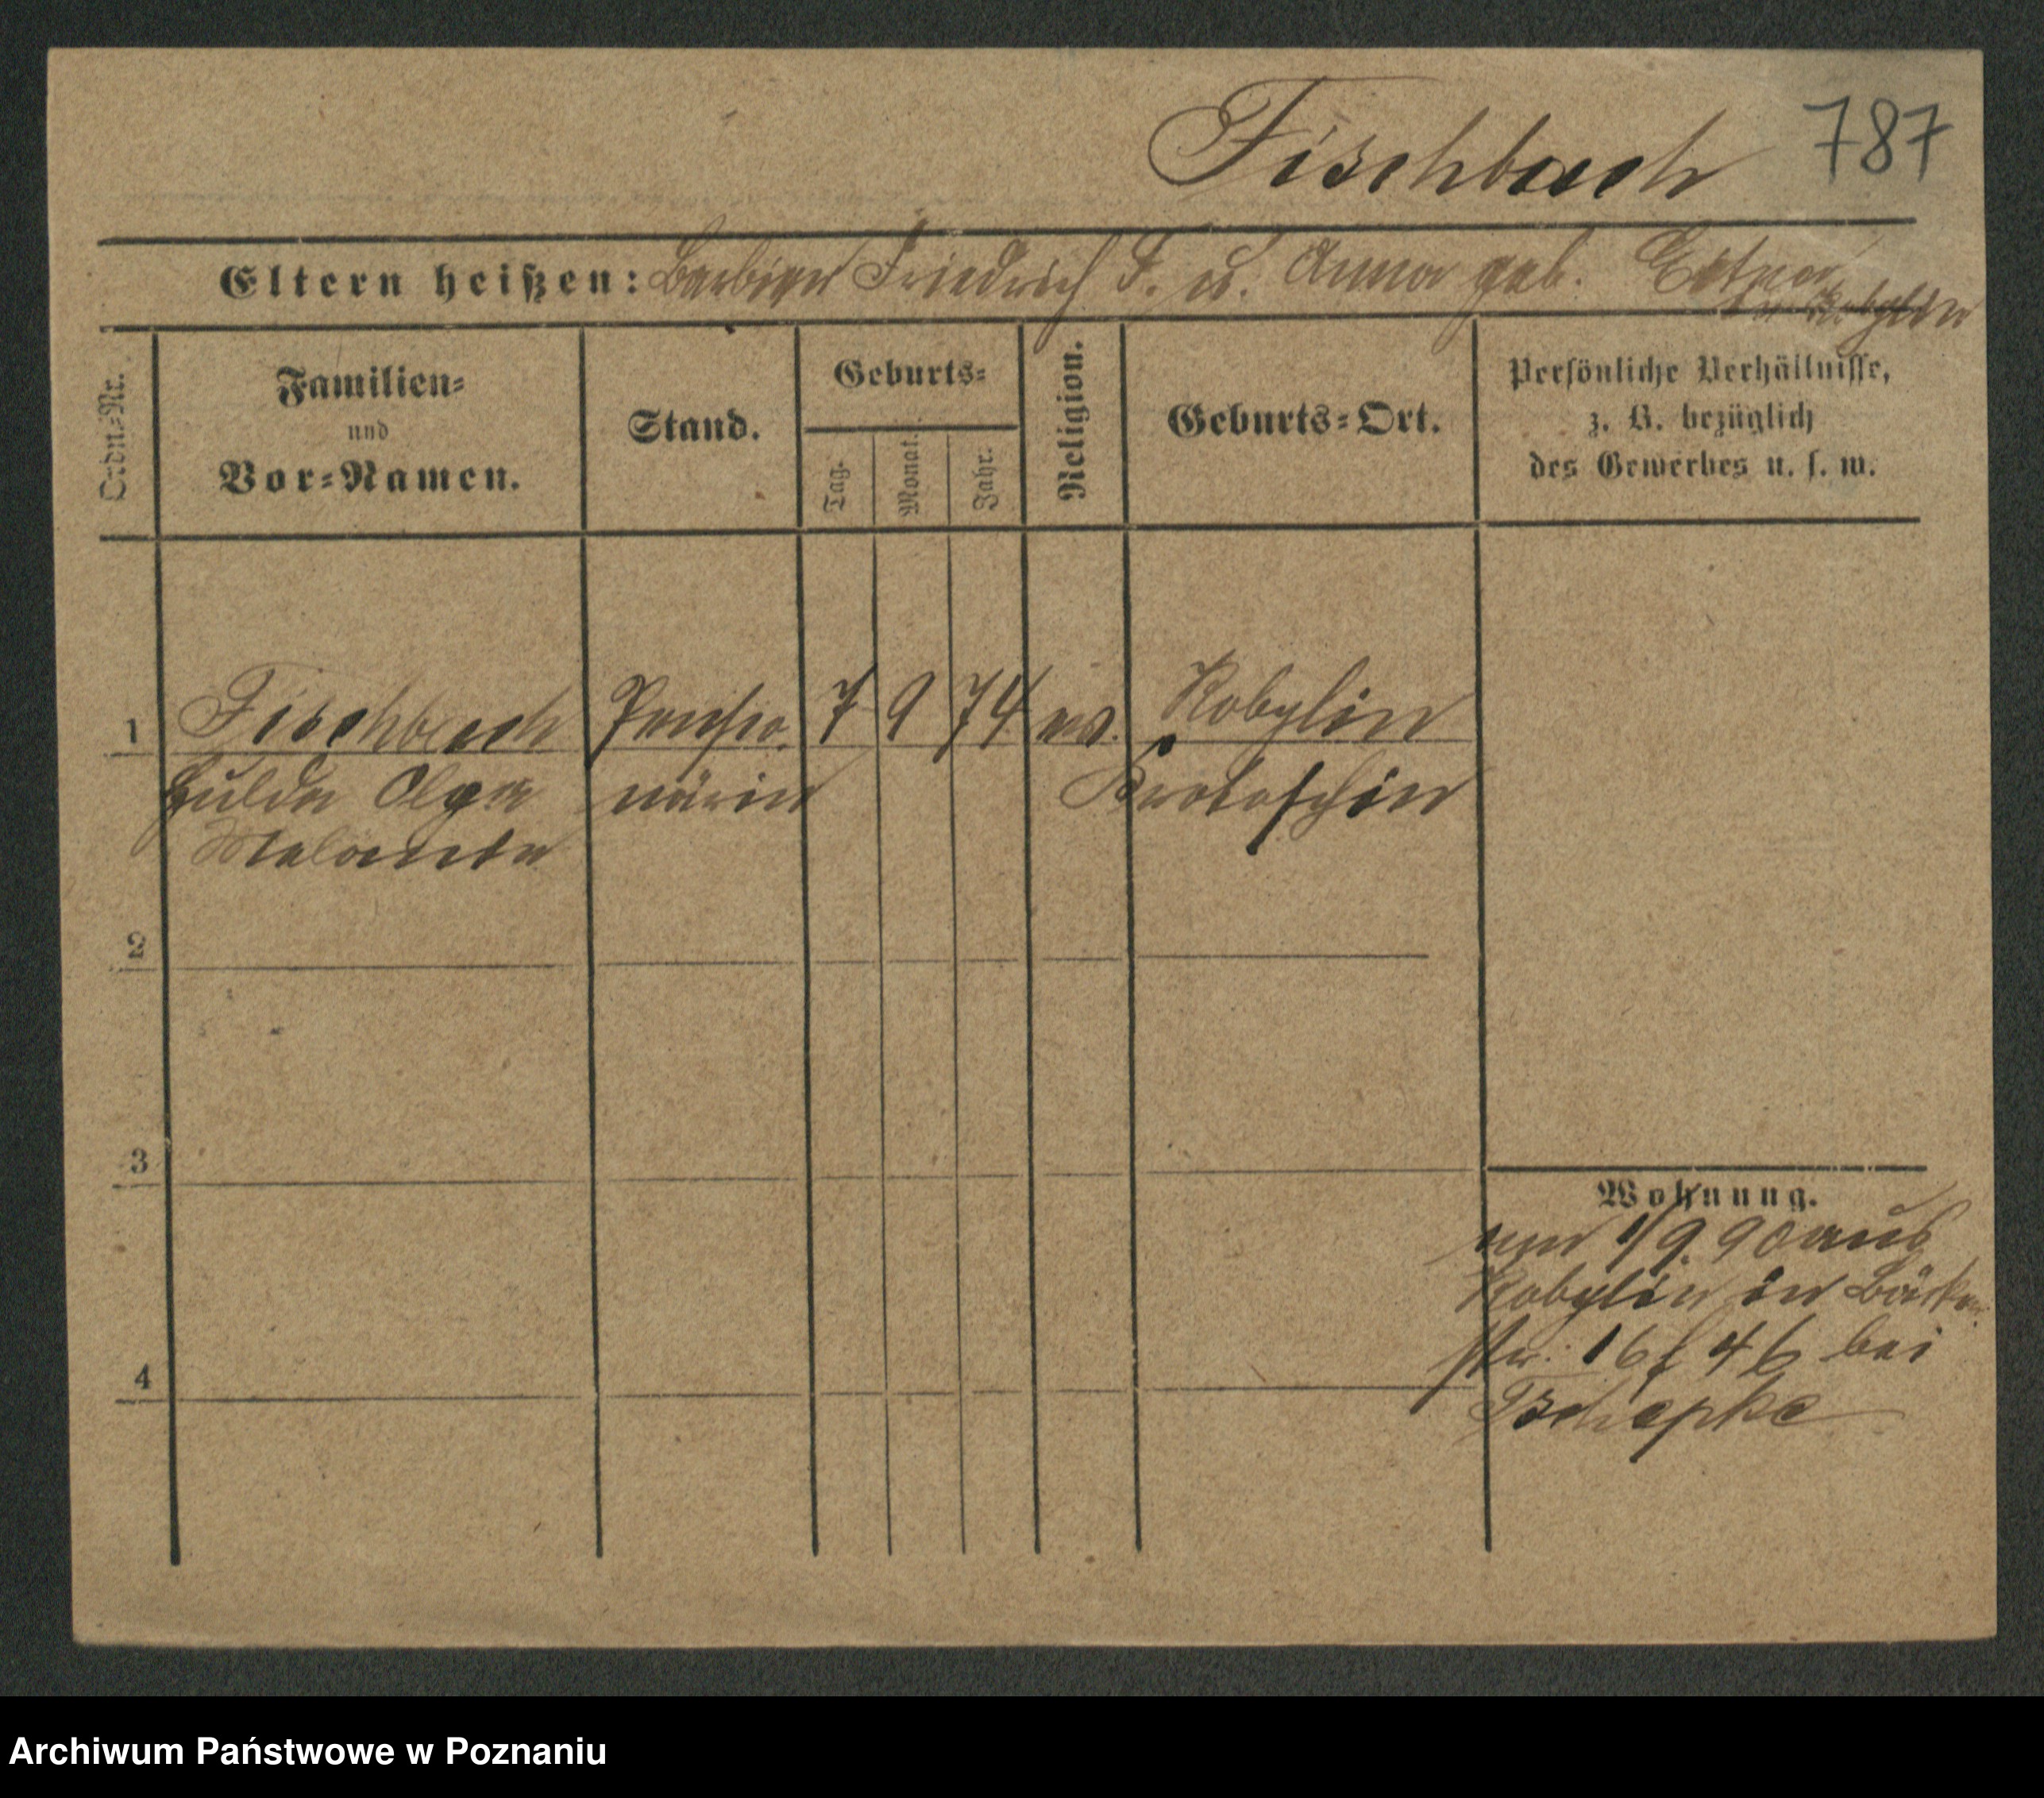 Fischbach 787
Eltern heißen: Barbier Friedrich F. u. Anna geb.
in Kobylin
Ordn.=Nr.
Familien=
und
Vor=Namen.
Stand.
Geburts=
Tag.
Monat.
Jahr.
Religion.
Geburts=Ort.
Persönliche Verhältnisse,
z. B. bezüglich
des Gewerbes u. s. w.
1 Fischbach Pensio 7 9 74 ev. Kobylin
Hulda Olga närin Krotoschin
2
3
Wohnung.
1/9 90 aus
Kobylin in Bäcker
str. 16 bei
Tschepke
4
Archiwum Państwowe w Poznaniu